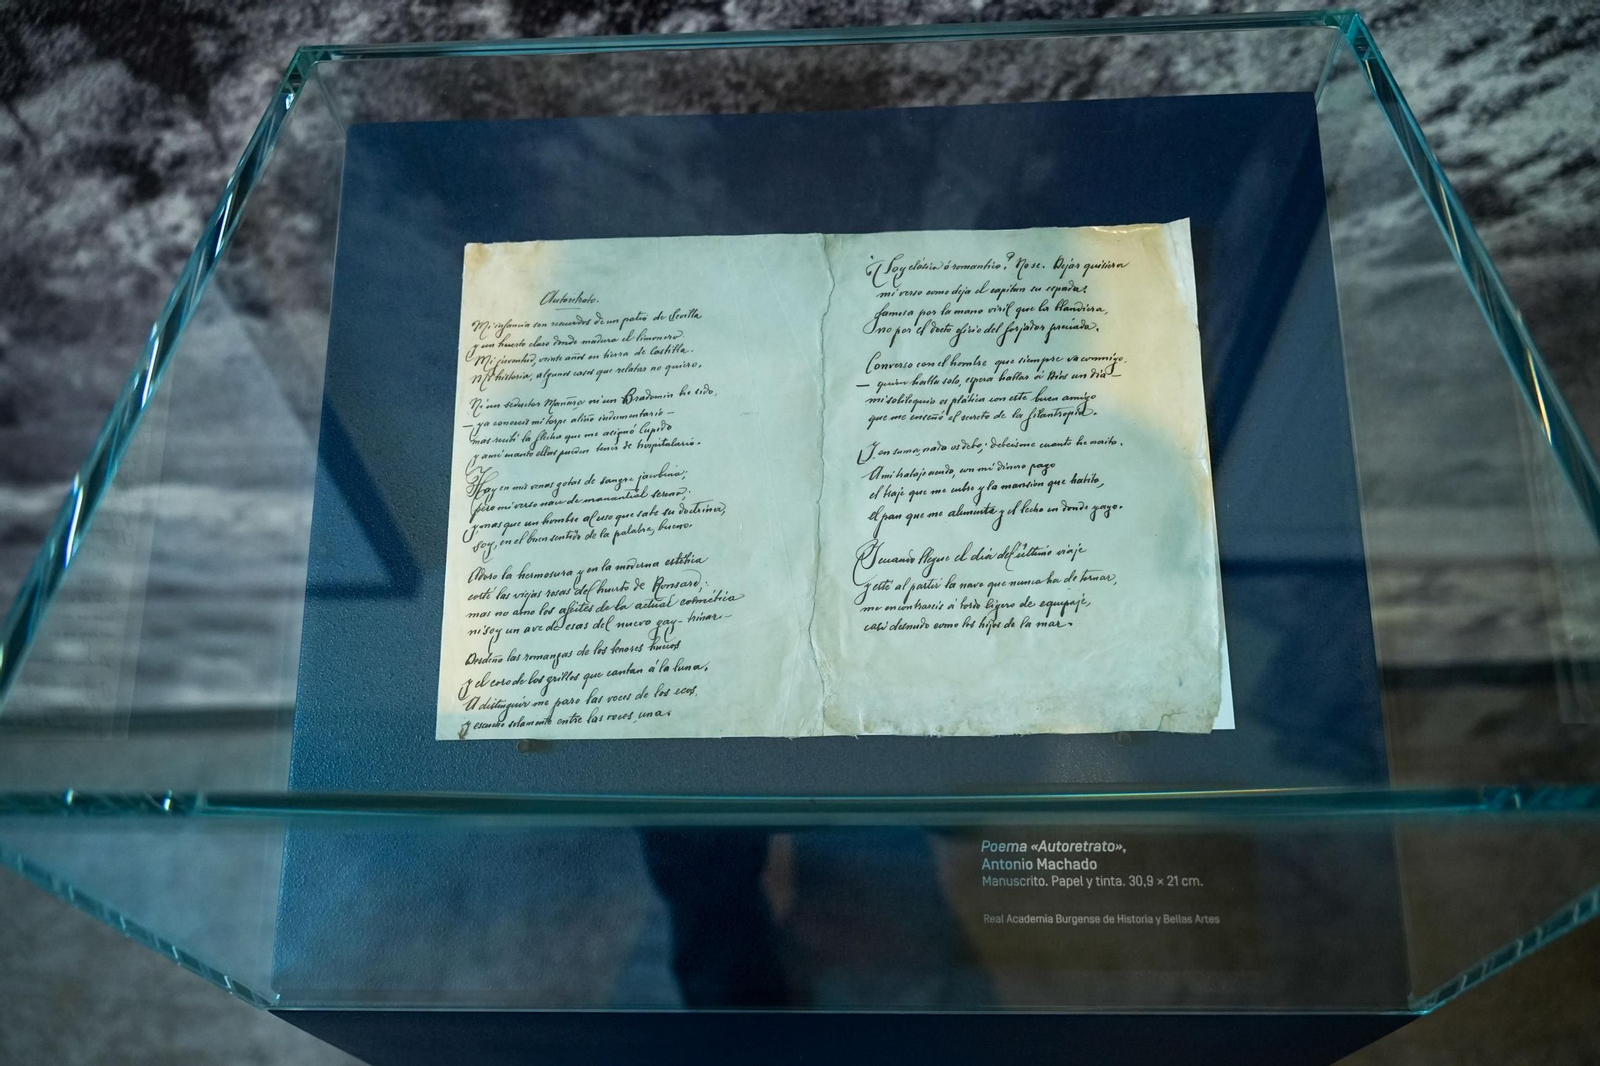 Autoretrato.
Mi infancia son recuerdos de un patio de Sevilla
y un huerto claro donde madura el limonero
Mi juventud, veinte años en tierra de Castilla.
Mi historia, algunos casos que relatar no quiero.
Ni un seductor Mañara ni un Bradomin he sido,
— ya conoceis mi torpe aliño indumentario —
mas recibí la flecha que me asignó Cupido
y amé cuanto ellas pueden tener de hospitalario.
Hay en mis venas gotas de sangre jacobina;
pero mi verso nace de manantial sereno;
y mas que un hombre al uso que sabe su doctrina,
soy, en el buen sentido de la palabra, bueno.
Adoro la hermosura y en la moderna estética
corté las viejas rosas del huerto de Ronsard;
mas no amo los afeites de la actual cosmética
ni soy un ave de esas del nuevo gay-trinar—
Desdeño las romanzas de los tenores huecos
y el coro de los grillos que cantan á la luna.
A distinguir me paro las voces de los ecos,
y escucho solamente entre las voces, una.
¿Soy clásico ó romantico? No se. Dejar quisiera
mi verso como deja el capitan su espada:
famosa por la mano viril que la blandiera,
no por el docto oficio del forjador preciada.
Converso con el hombre que siempre va conmigo.
— quien habla solo, espera hablar á Dios un dia —
mi soliloquio es plática con este buen amigo
que me enseñó el secreto de la filantropia.
Y, en suma, nada os debo; debeisme cuanto he escrito.
A mi trabajo acudo, con mi dinero pago
el traje que me cubre y la mansion que habito,
el pan que me alimenta y el lecho en donde yago.
Y cuando llegue el dia del último viaje
y esté al partir la nave que nunca ha de tornar,
me encontrareis á bordo ligero de equipaje,
casi desnudo como los hijos de la mar.
Poema «Autoretrato»,
Antonio Machado
Manuscrito. Papel y tinta. 30,9 × 21 cm.
Real Academia Burgense de Historia y Bellas Artes